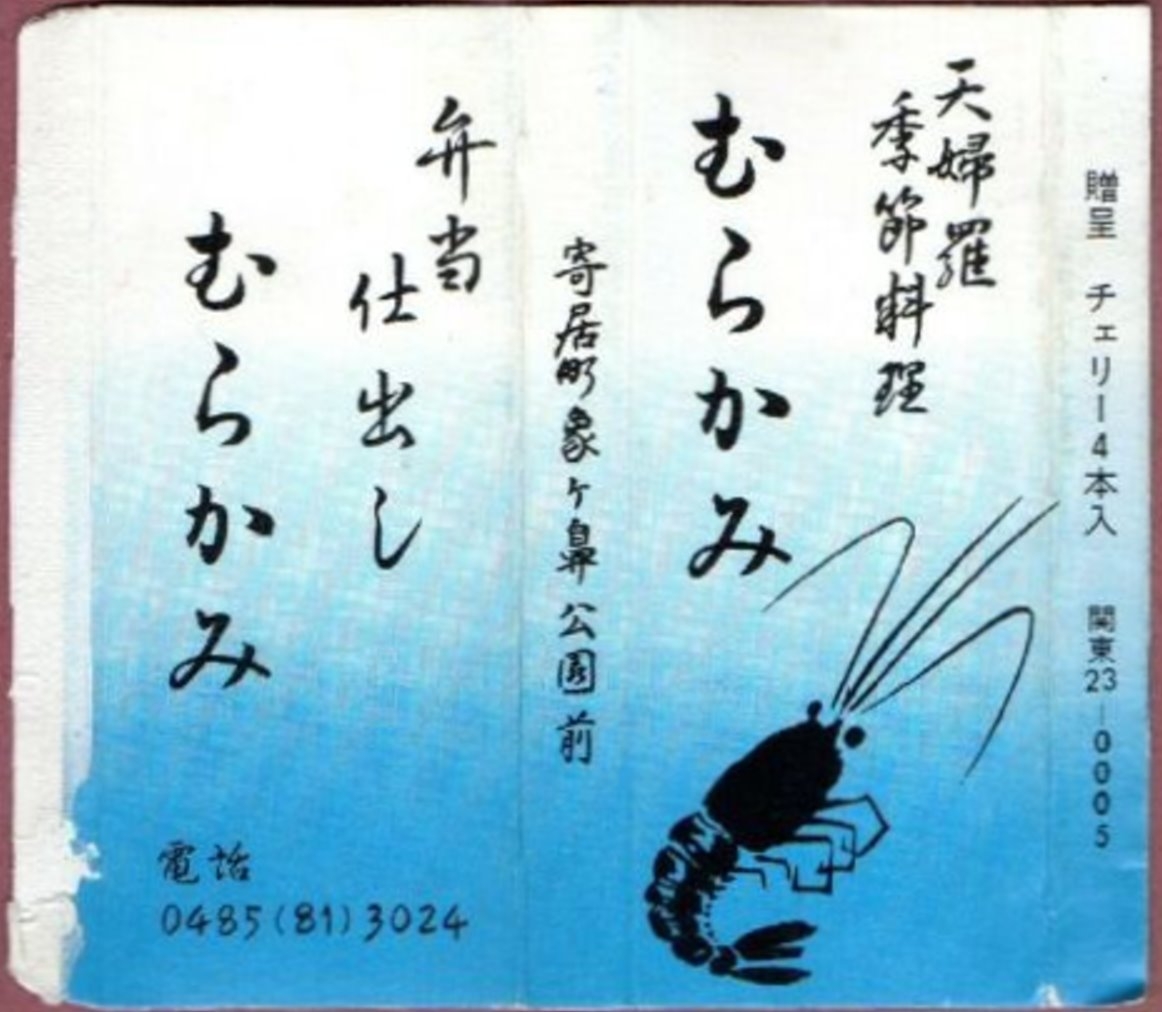 贈呈 チェリー4本入 関東23-0005
天婦羅
季節料理
むらかみ
寄居町象ヶ鼻公園前
弁当
仕出し
むらかみ
電話
0485(81)3024